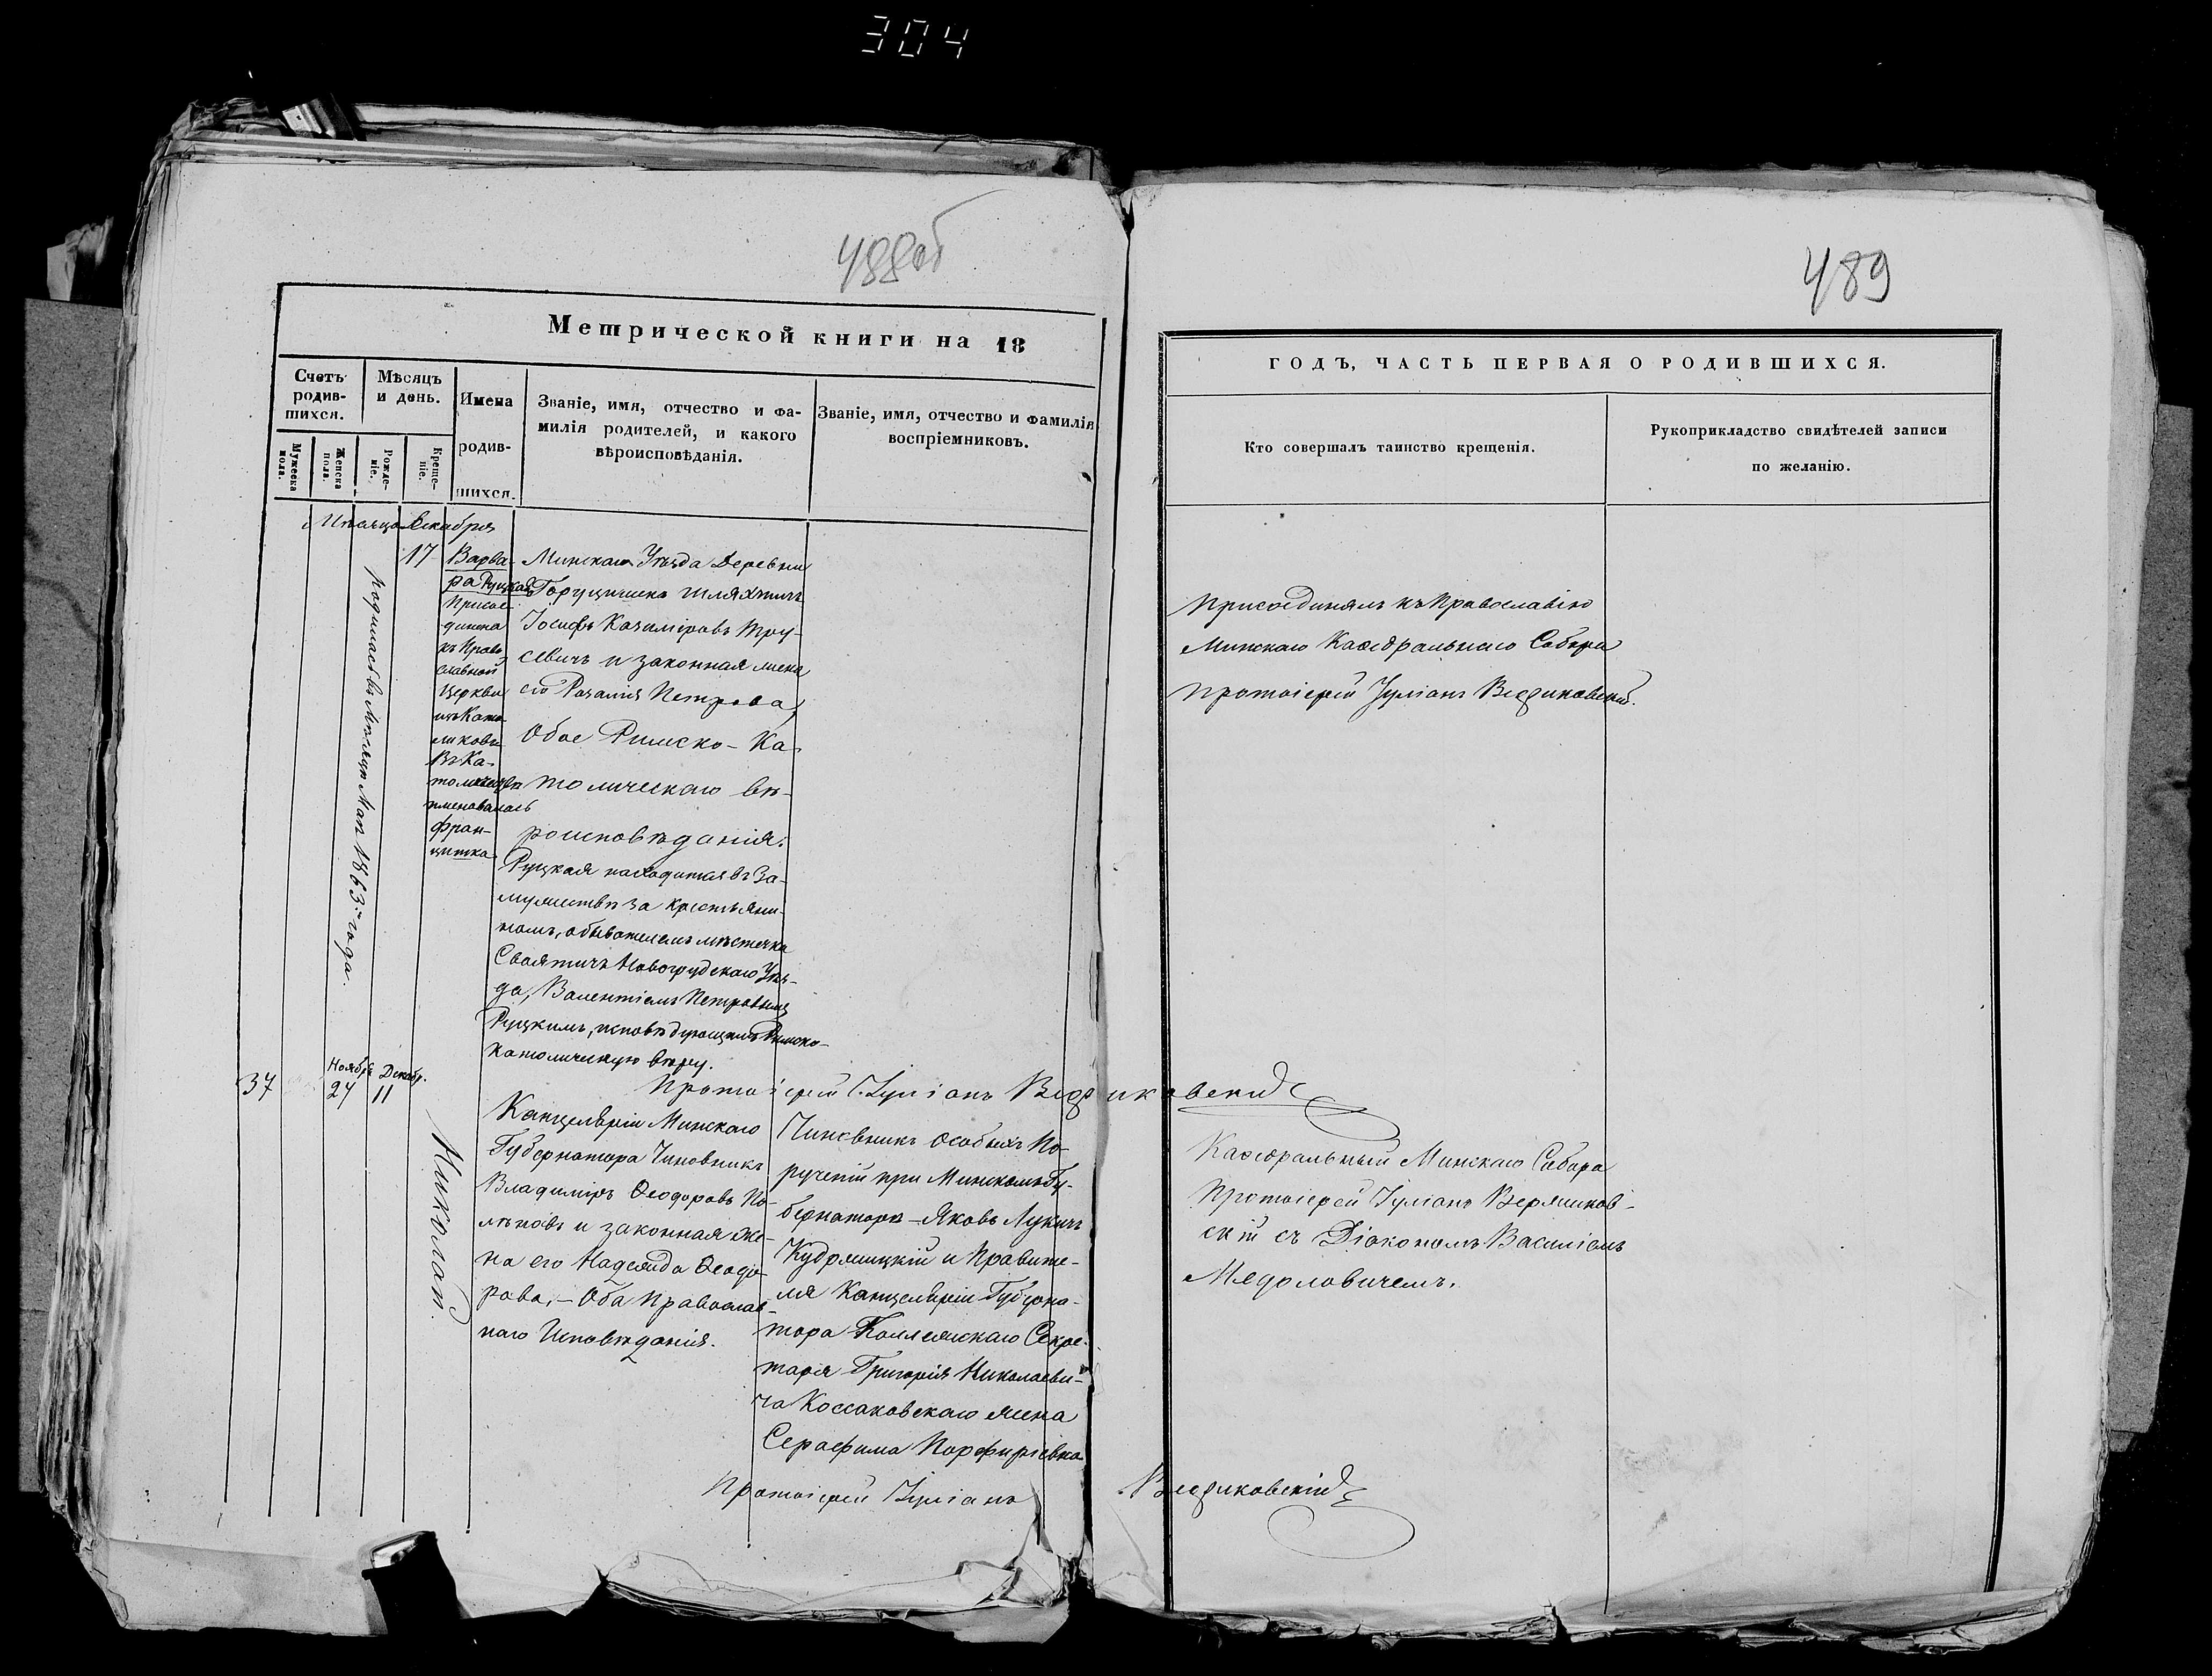 304
488об
489
Метрической книги на 18
ГОДЪ, ЧАСТЬ ПЕРВАЯ О РОДИВШИХСЯ.
Счетъ родив-
шихся.
Мѣсяцъ
и день.
Мужеска
пола.
Женска
пола.
Рожде-
ніе.
Креще-
ніе.
Имена
родив-
шихся.
Званіе, имя, отчество и фа-
милія родителей, и какого
вѣроисповѣданія.
Званіе, имя, отчество и фамилія
воспріемниковъ.
Кто совершалъ таинство крещенія.
Рукоприкладство свидѣтелей записи
по желанію.
Мѣсяца Декабря
родилась въ Мѣсяцѣ Маѣ 1863 года.
17
Варва-
ра Руцкая
Присое-
динена
къ Право
славной
Церкви
изъ Като-
ликовъ
Въ Ка-
толичествѣ
именовалась
Фран-
цишка
Минскаго Уѣзда Деревни
шляхтичъ
Іосифъ Казиміровъ Тру-
севичъ и законная жена
его Розалия Петрова,
Обое Римско-Ка-
толическаго вѣ-
роисповѣданія.
Руцкая находится въ За-
мужествѣ за крестьяни-
номъ, обывателемъ мѣстечка
Своятичъ Новогрудскаго Уѣз-
да, Валентіемъ Петровымъ
Руцкимъ, исповѣдующимъ Римско-
католическую вѣру.
Присоединялъ къ Православію
Минскаго Каѳедральнаго Собора
Протоіерей Іуліанъ
Протоіерей Іуліанъ
37
Ноябр.
24
Декабр.
11
Николай.
Канцеляріи Минскаго
Губернатора Чиновникъ
Владиміръ Ѳеодоровъ По-
лѣновъ и законная же-
на его Надежда Ѳеодо-
рова, - Оба Православ-
наго Исповѣданія.
Чиновникъ Особыхъ По-
рученій при Минскомъ Гу-
бернаторѣ - Яковъ Лукичъ
Кудрицкій и Правите-
ля Канцеляріи Губерна-
тора Коллежскаго Секре-
таря Григорія Николаеви-
ча Коссаковскаго жена
Серафима Порфиріевна
Каѳедральный Минскаго Собора
Протоіерей Іуліанъ
скій съ Діакономъ Василіемъ
Протоіерей Іуліанъ